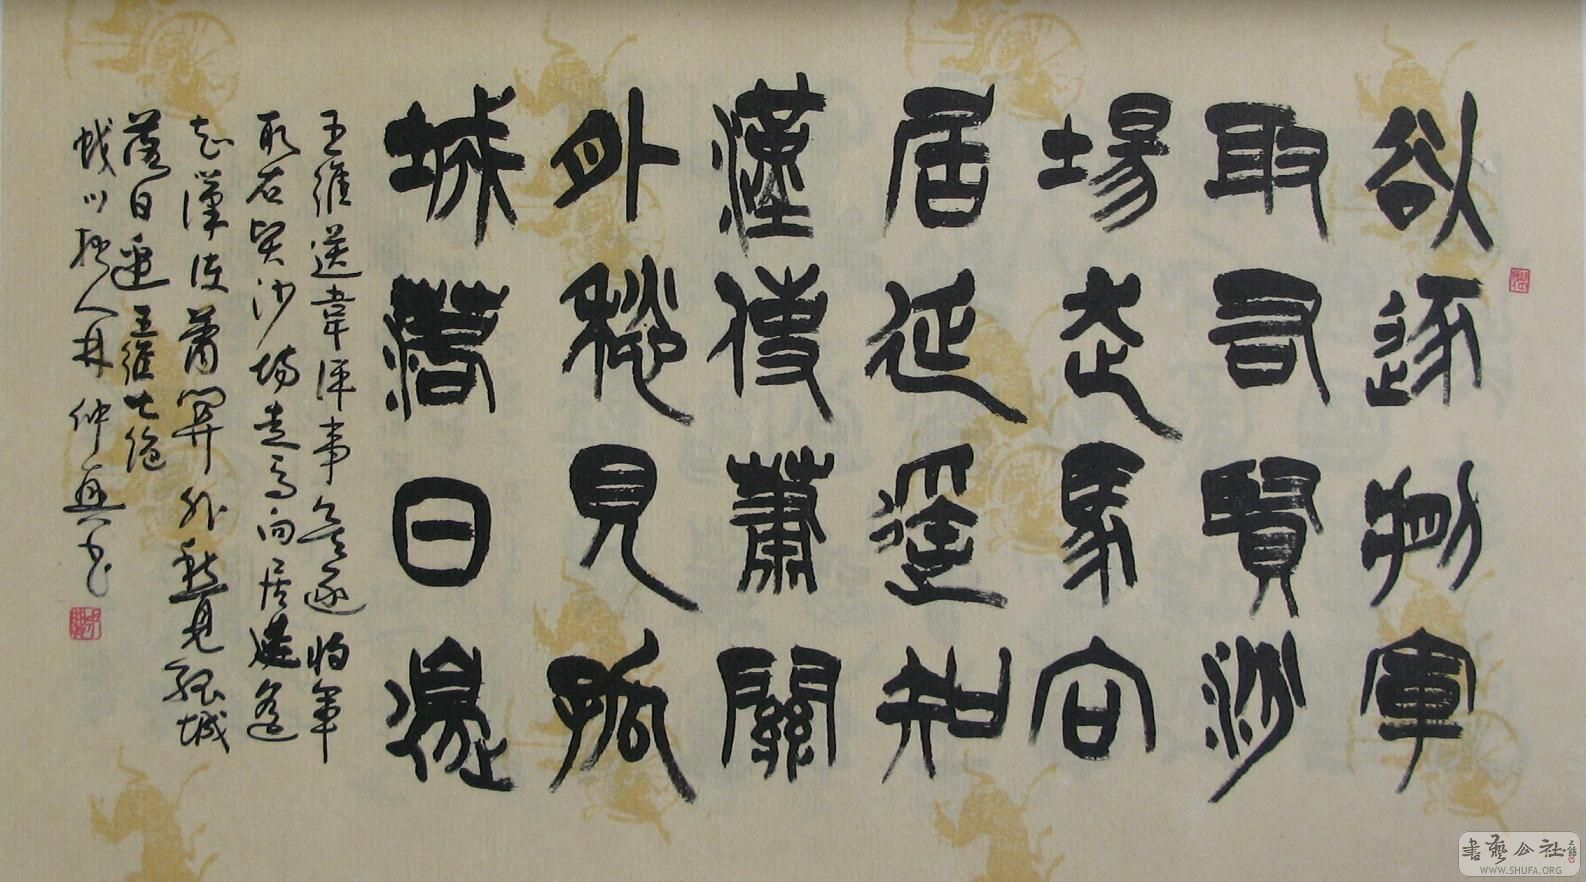 欲逐將軍
取右賢沙
場走馬向
居延遥知
漢使蕭關
外愁見孤
城落日邊
王維送韋評事欲逐將軍
取右賢沙場走馬向居延遥
知漢使蕭關外愁見孤城
落日邊王維七絕
人林仲興書
書藝公社
WWW.SHUFA.ORG